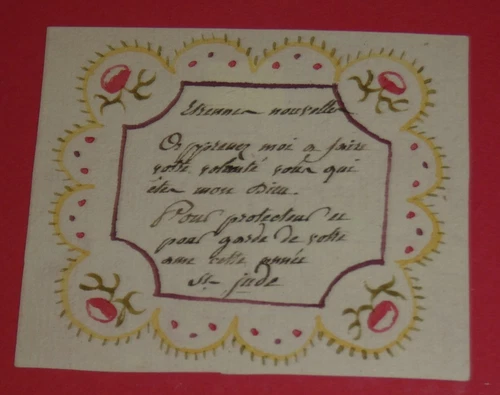 Etrenne nouvelle
Apprenez moi a faire
votre volonté vous qui
ète mon Dieu.
Pour protecteur et
pour garde de votre
ame cette année
St jude